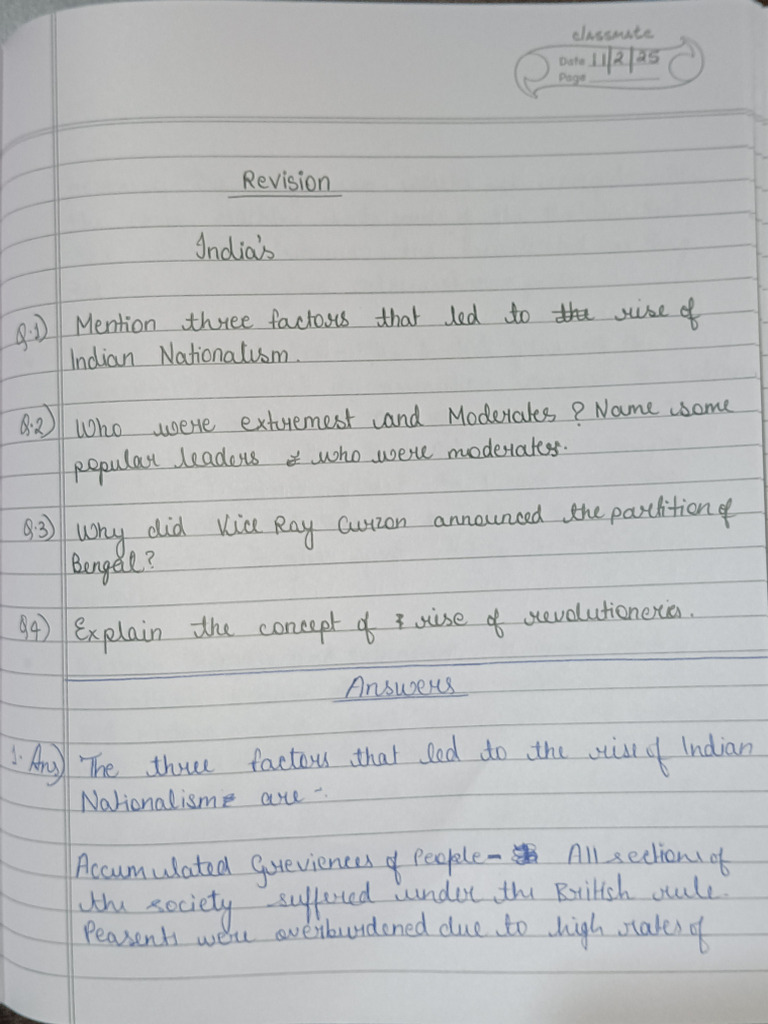 classmate
Date 11/2/25
Page
Revision
India's
Q.1) Mention three factors that led to the rise of
Indian Nationalism.
Q.2) Who were extremest and Moderates? Name some
popular leaders who were moderates.
Q.3) Why did Vice Ray Curzon announced the partition of
Bengal?
Q4) Explain the concept of rise of revolutioneries.
Answers
1. Ans) The three factors that led to the rise of Indian
Nationalism are -
Accumulated Grieviences of People - All sections of
the society suffered under the British rule.
Peasents were overburdened due to high rates of